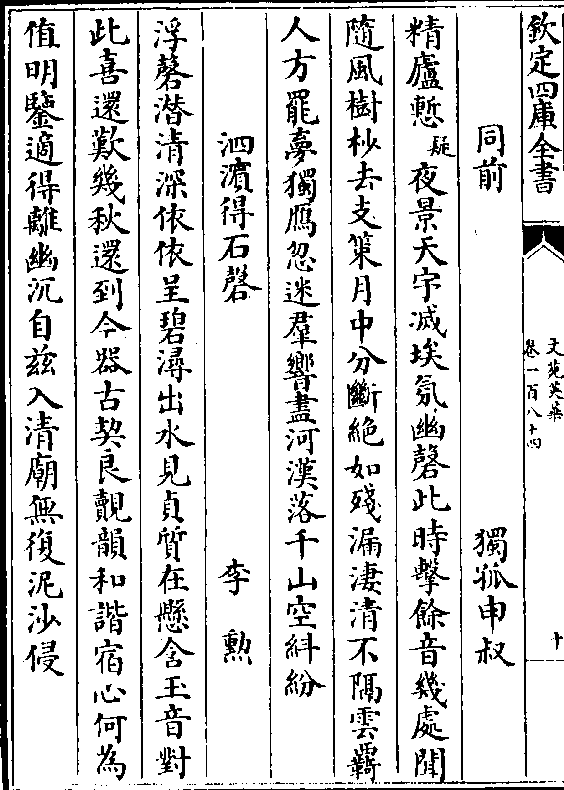 欽定四庫全書
文苑英華
卷一百八十四
十
同前 獨孤申叔
精廬慙疑夜景天宇滅埃氛幽磬此時擊餘音幾處聞
隨風樹杪去支策月中分斷絕如殘漏淒清不隔雲羇
人方罷夢獨鴈忽迷羣響盡河漢落千山空糾紛
泗濱得石磬 李勲
浮磬潜清深依依呈碧潯出水見貞質在懸含玉音對
此喜還歎幾秋還到今器古契良覿韻和諧宿心何為
值明鑒適得離幽沉自兹入清廟無復泥沙侵